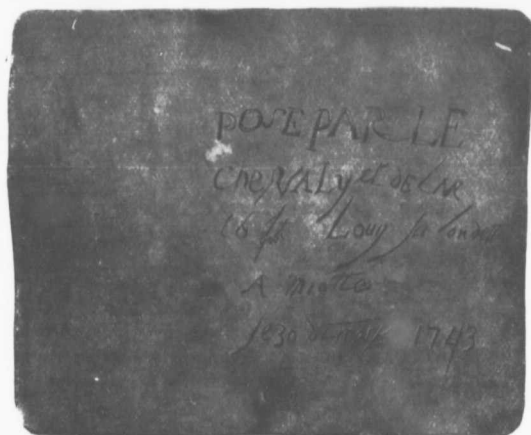 POSE PAR LE
CheVALyet DE LAR
Louy la Londet
A Miotte
le 30 de mars 1743